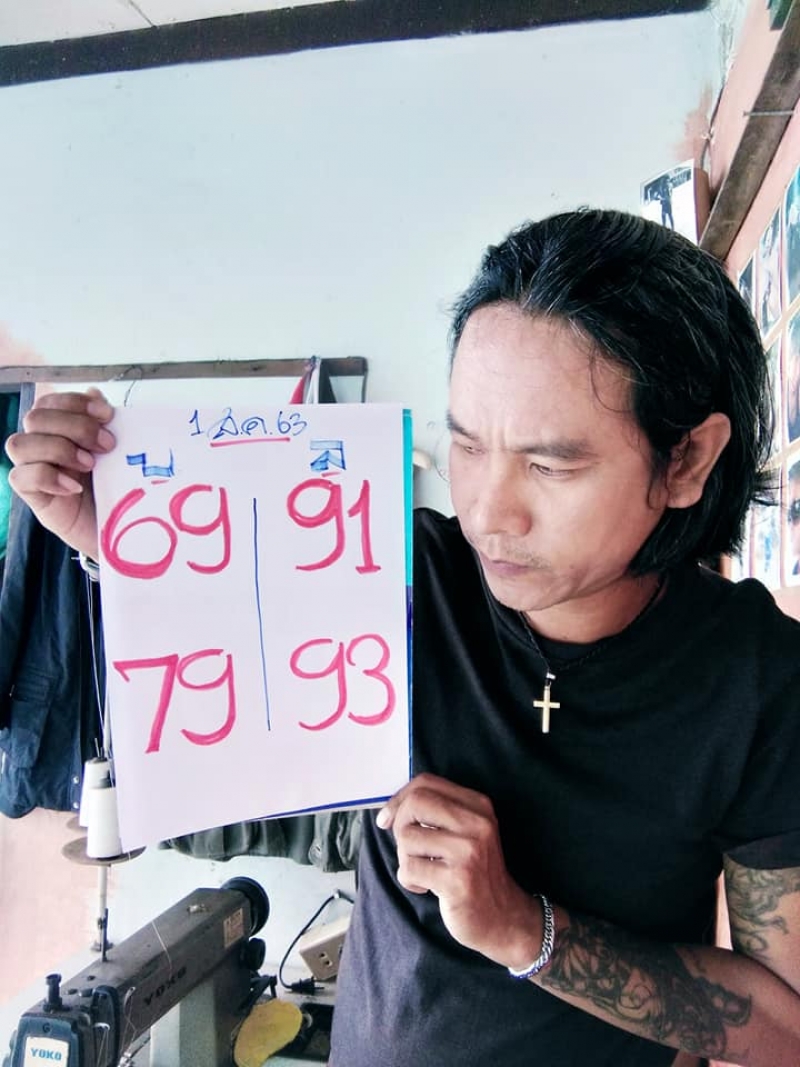 1 มี.ค. 63
บ ล
69 91
79 93
YOKO
YOKO